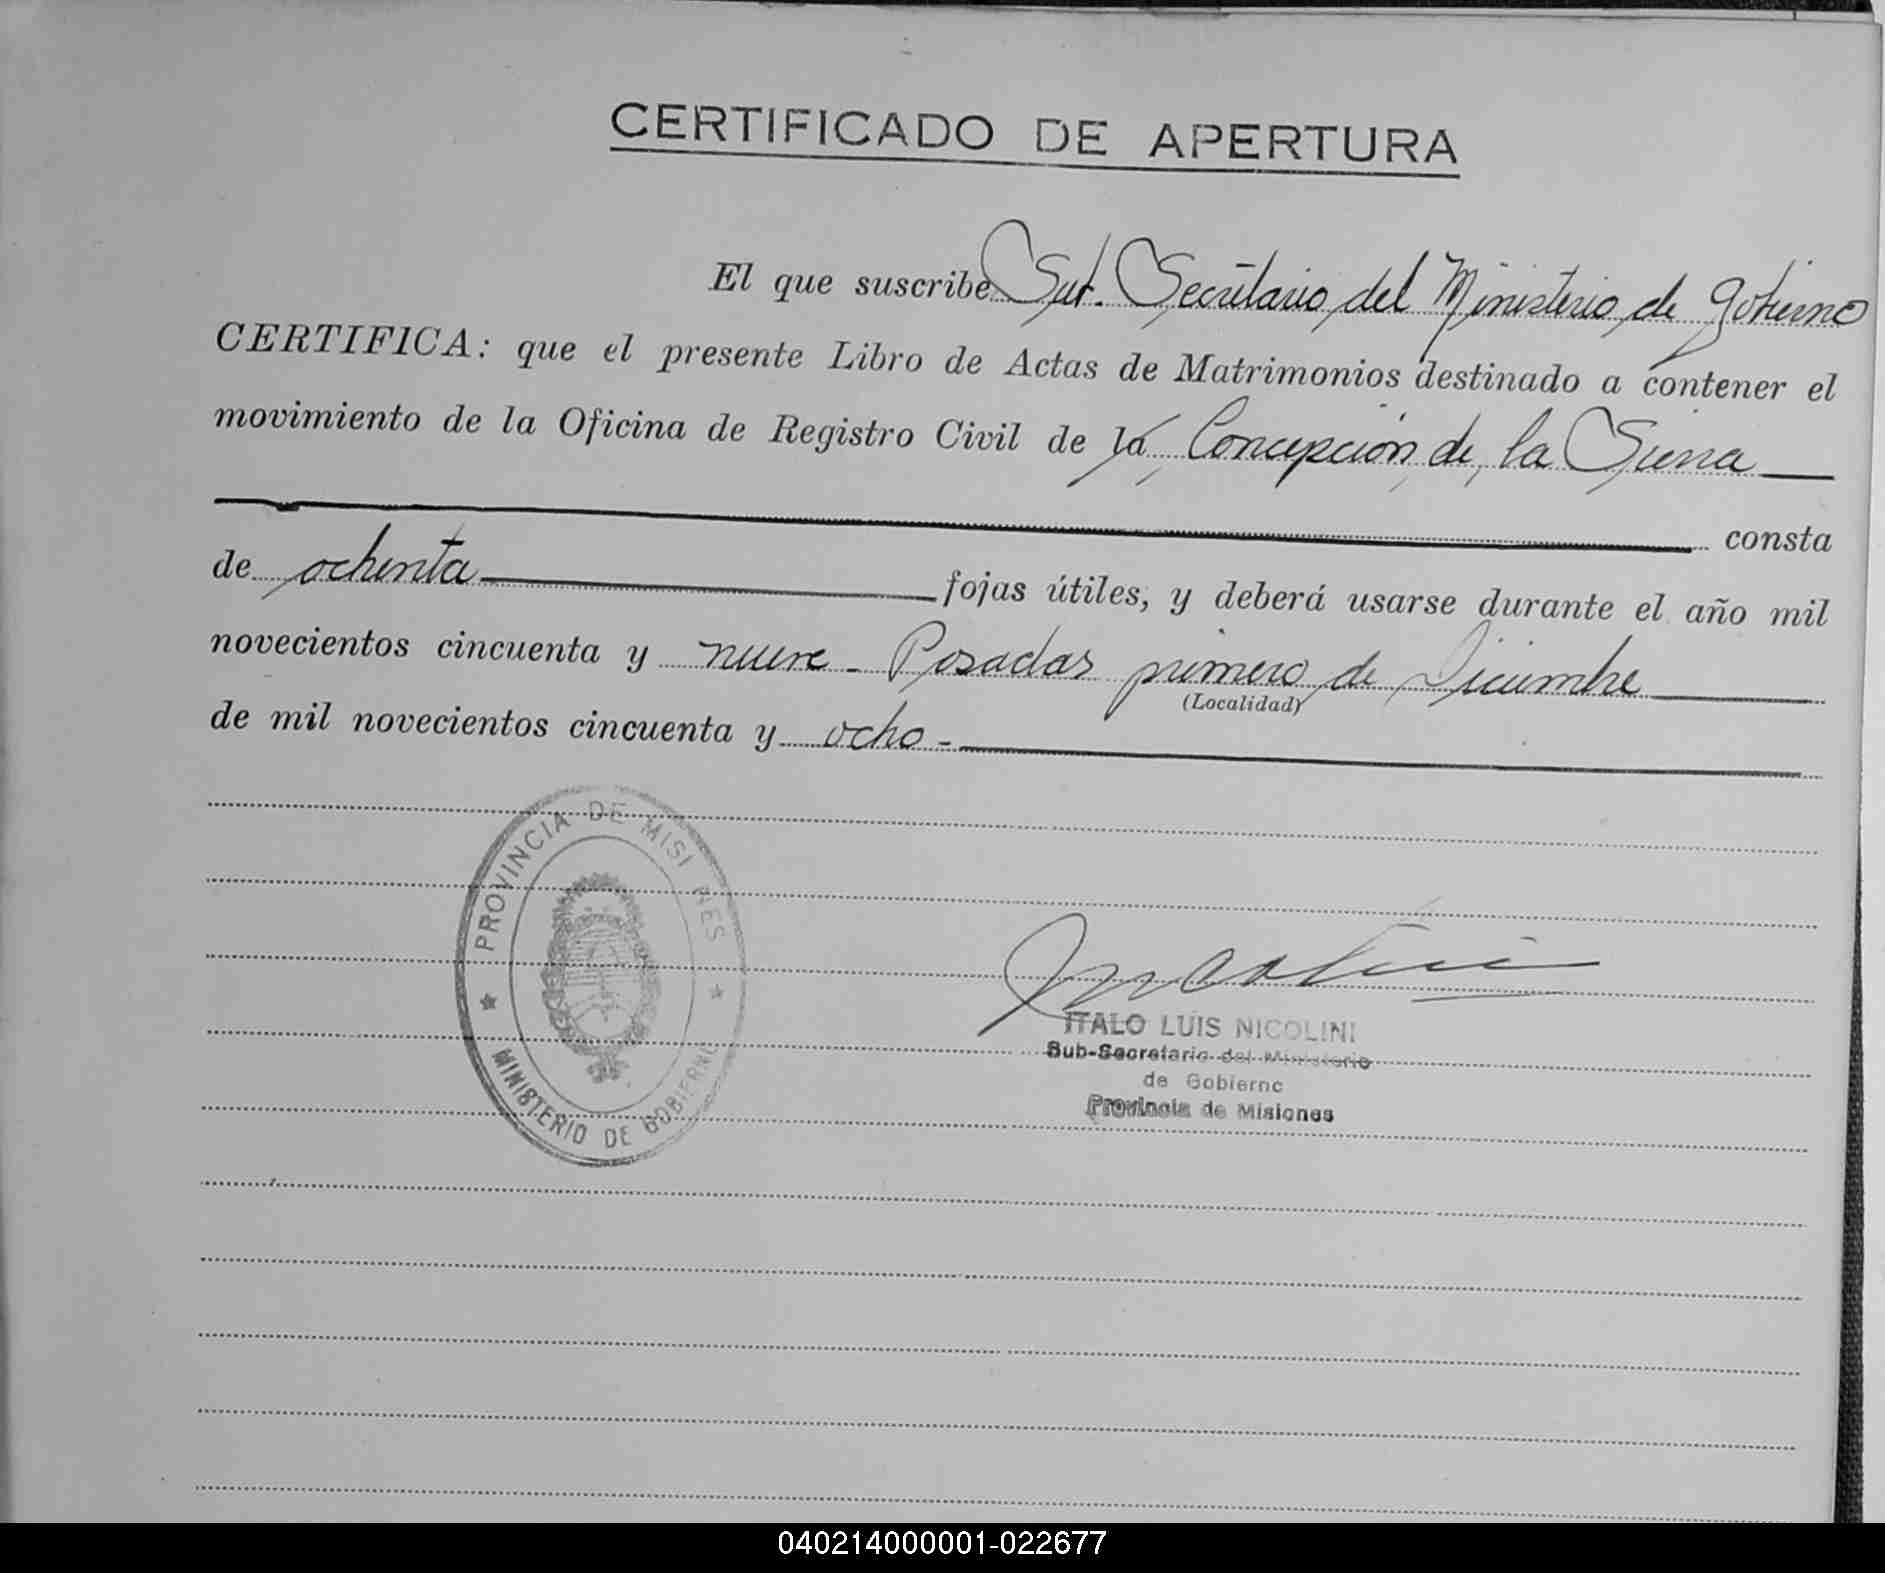 CERTIFICADO DE APERTURA
El que suscribe Sub. Secretario del Ministerio de Gobierno
CERTIFICA: que el presente Libro de Actas de Matrimonios destinado a contener el
movimiento de la Oficina de Registro Civil de la Concepción de la Sierra
consta
de ochenta fojas útiles, y deberá usarse durante el año mil
novecientos cincuenta y nueve - Posadas primero de Diciembre
(Localidad)
de mil novecientos cincuenta y ocho -
PROVINCIA DE MISI NES
MINISTERIO DE GOBIERNO
ITALO LUIS NICOLINI
Sub-Secretario del Ministerio
de Gobierno
Provincia de Misiones
040214000001-022677